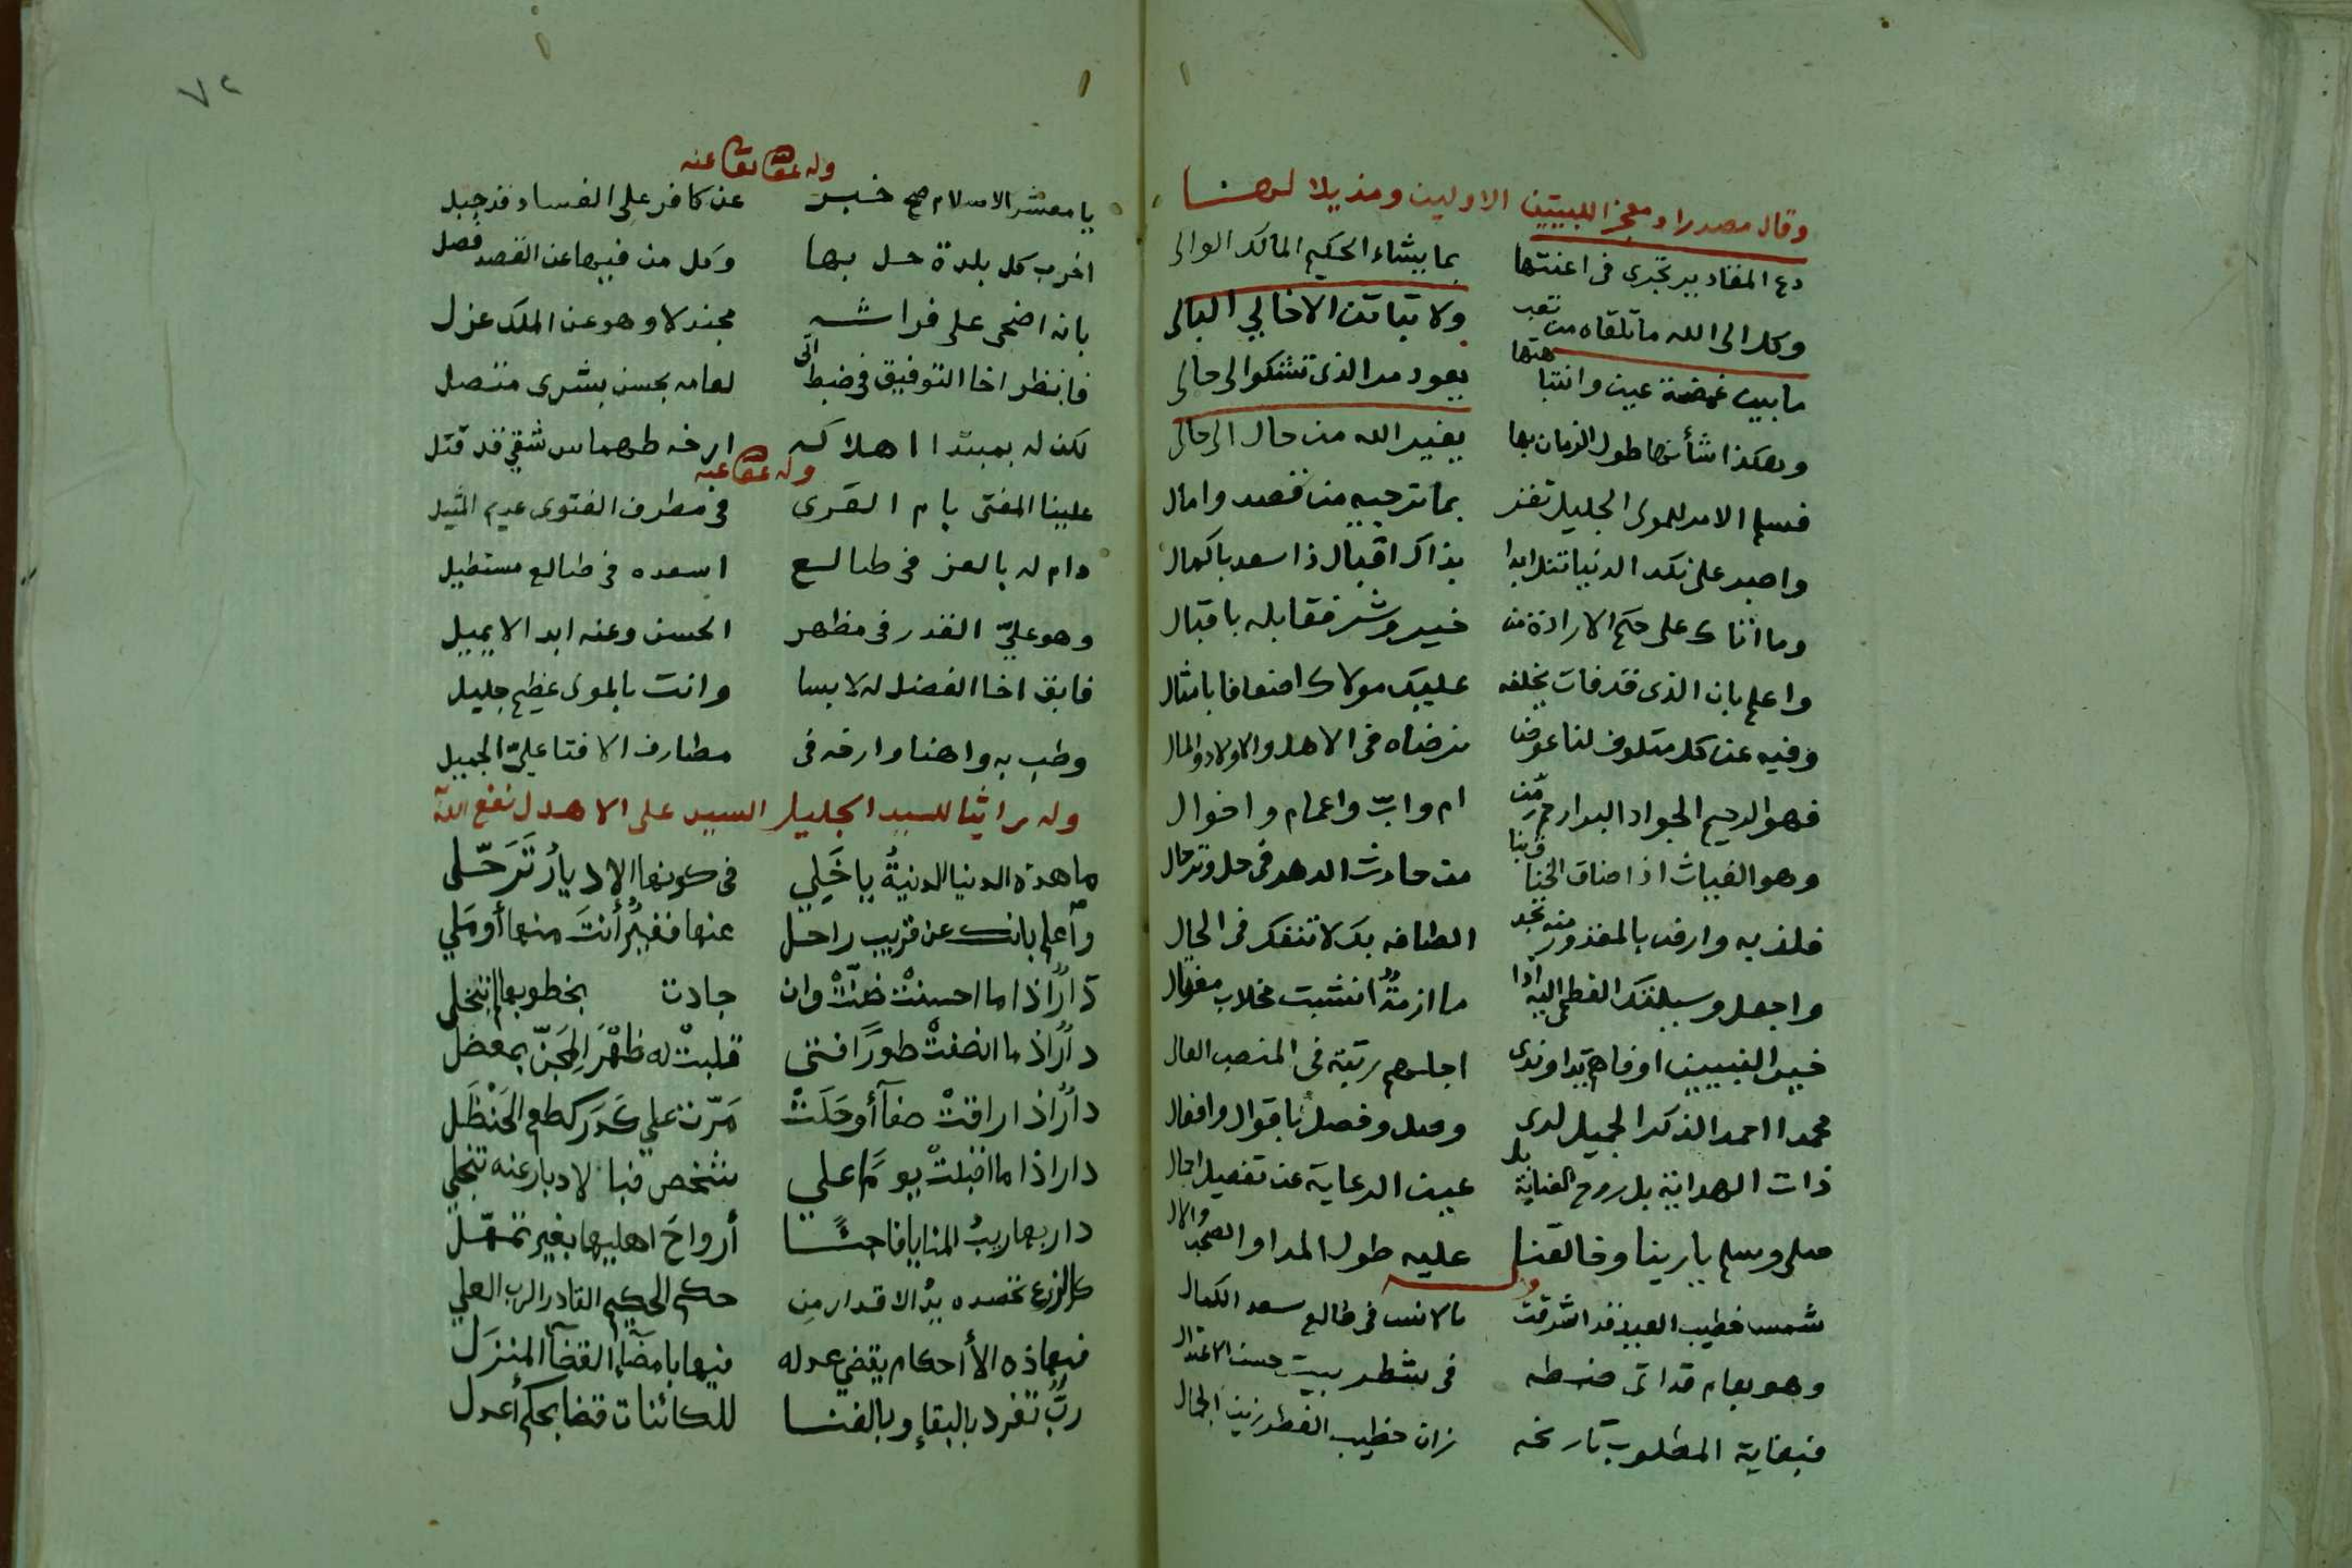 وقال مصدرا ومعجزا للبيتين الاولين ومذيلا لهما
دع المقادير تجرى فى اعنتها بما يشاء الحكيم المالك الوالى
وكل الى الله ما تلقاه من تعب ولا تباتن الا خالي البالى
ما بين غمضة عين وانتباهتها يعود مر الذى تشكوا لى حالى
وهكذا شأنها طول الزمان بها يغير الله من حال الى حالى
فسلم الامر للمولى الجليل تفز بما ترجيه من قصد وامال
واصبر على نكد الدنيا تنل ابدا بذاك اقبال ذا سعد باكمال
وما اتاك على حكم الارادة من خير وشر فقابله باقبال
واعلم بان الذى قد فات يخلفه عليك مولاك اضعافا بامثال
وفيه عن كل متلوف لنا عوض نرضاه فى الاهل والاولاد والمال
فهو الرحيم الجواد البر ارحم من ام واب واعمام واخوال
وهو الغياث اذا ضاق الخناق بنا من حادث الدهر فى حل وترحال
فلذ به وارض بالمقدور منه تجد الطافه بك لا تنفك فى الحال
واجعل وسيلتك العظمى اليه اذا ما ازمة انشبت مخلاب مغوال
خير النبيين اوفاهم يدا وندى اجلهم رتبة فى المنصب العال
محمدا احمد الذكر الجميل لدى وصل وفصل باقوال وافعال
ذات الهداية بل روح العناية بل عين الرعاية عن تفصيل اجمال
صلى وسلم بارينا وخالقنا عليه طول المدا والصحب والال
وله
شمس خطيب العيد قد اشرقت بالانس فى طالع سعد الكمال
وهو بعام قد اتى ضبطه فى شطر بيت حسن الاعتدال
فبغاية المطلوب تاريخه زان خطيب الفطر زين الجمال
٧٢
وله عفا الله تعا عنه
يا معشر الاسلام صح خبر عن كافر على الفساد قد جبل
اخرب كل بلدة حل بها وكل من فيها عن القصد فصل
بانه اضحى على فراشه مجندلا وهو عن الملك عزل
فانظر اخا التوفيق فى ضبط اتى لعامه بحسن بشرى متصل
لكن له بمبتدا اهلاكه ارخه طهماس شقي قد قتل
وله عفا عنه
علينا المفتى بام القرى فى مطرف الفتوى عديم المثيل
دام له بالعز فى طالع اسعده فى طالع مستطيل
وهو عليّ القدر فى مظهر الحسن وعنه ابدا لا يميل
فابق اخا الفضل له لابسا وانت بالمولى عظيم جليل
وطب به واهنا وارخه فى مطارف الافتا عليّ الجميل
وله راثيا للسيد الجليل السيد على الاهدل نفع الله
ما هذه الدنيا الدنيةُ يا خَلِي فى كونها الا ديارُ تَرَحّلى
وأعلم بانك عن قريب راحل عنها فقيرٌ أنتَ منها أو مَلي
دارٌ اذا ما احسنتْ ضنّتْ وان جادت بخطوبها لم تبخلي
دارٌ اذا ما انصفتْ طورًا فتى قلبتْ له ظهْرَ المِجَنّ بمعضل
دارٌ اذا راقتْ صفآ أو حَلَتْ مَرّت على كَدَر كطعم الحَنْظَل
دار اذا ما اقبلتْ يومًا على شخص فبا لادبار عنه تنجلي
دار بها ريبُ المنايا فاجئًا أرواحَ اهليها بغير تمهّل
كالزرع تحصده يدُ الاقدار مِن حكم الحكيم القادر الرب العلي
فبهاذه الأحكام يقضي عدله فيها بامضآء القضآ المنزل
ربٌّ تفرد بالبقاء وبالفنا للكائنات قضا بحكم أعدل